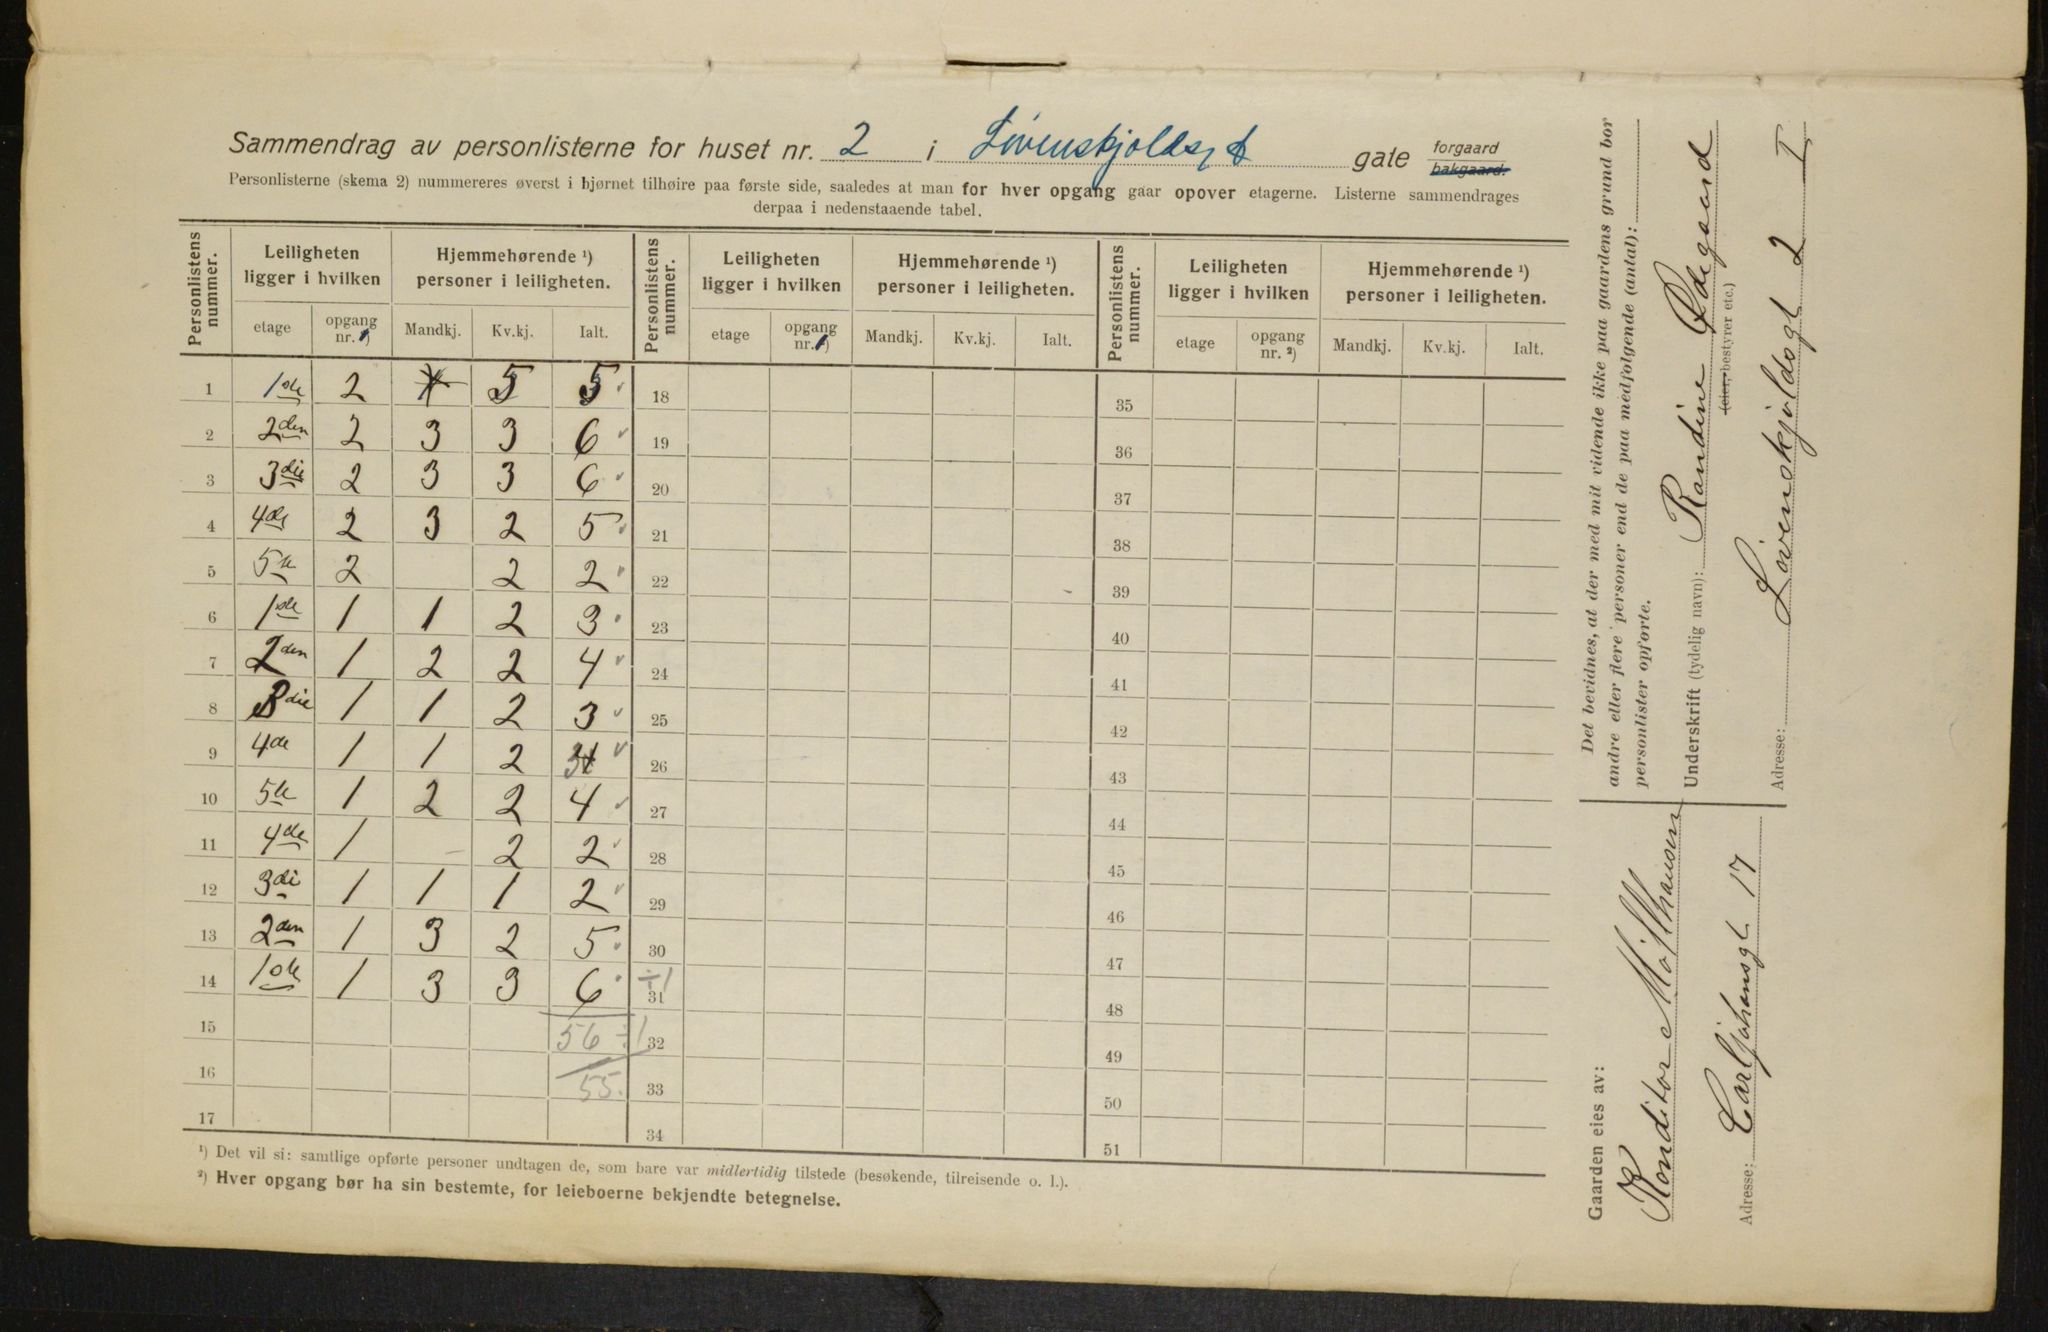 Sammendrag av personlisterne for huset nr. 2 i Løvenskjoldsgt gate forgaard bakgaard.
Personlisterne (skema 2) nummereres øverst i hjørnet tilhøire paa første side, saaledes at man for hver opgang gaar opover etagerne. Listerne sammendrages
derpaa i nedenstaaende tabel.
Personlistens nummer. Leiligheten ligger i hvilken Hjemmehørende ¹) personer i leiligheten. Personlistens nummer. Leiligheten ligger i hvilken Hjemmehørende ¹) personer i leiligheten. Personlistens nummer. Leiligheten ligger i hvilken Hjemmehørende ¹) personer i leiligheten.
etage opgang nr. ¹) Mandkj. Kv.kj. Ialt. etage opgang nr. ¹) Mandkj. Kv.kj. Ialt. etage opgang nr. ²) Mandkj. Kv.kj. Ialt.
1 1ste 2 5 5 18 35
2 2den 2 3 3 6 19 36
3 3die 2 3 3 6 20 37
4 4de 2 3 2 5 21 38
5 5te 2 2 2 22 39
6 1ste 1 1 2 3 23 40
7 2den 1 2 2 4 24 41
8 3die 1 1 2 3 25 42
9 4de 1 1 2 3 26 43
10 5te 1 2 2 4 27 44
11 4de 1 - 2 2 28 45
12 3di 1 1 1 2 29 46
13 2den 1 3 2 5 30 47
14 1ste 1 3 3 6 ÷1 31 48
15 56 ÷1 32 49
16 55. 33 50
17 34 51
¹) Det vil si: samtlige opførte personer undtagen de, som bare var midlertidig tilstede (besøkende, tilreisende o. l.).
²) Hver opgang bør ha sin bestemte, for leieboerne bekjendte betegnelse.
Det bevidnes, at der med mit vidende ikke paa gaardens grund bor
andre eller flere personer end de paa medfølgende (antal):
personlister opførte.
Underskrift (tydelig navn): Randine Ødegaard
(eier, bestyrer etc.)
Adresse: Løvenskjoldsgt 2 I
Gaarden eies av:
Konditor Møllhausen
Adresse: Carl Johansgt. 17